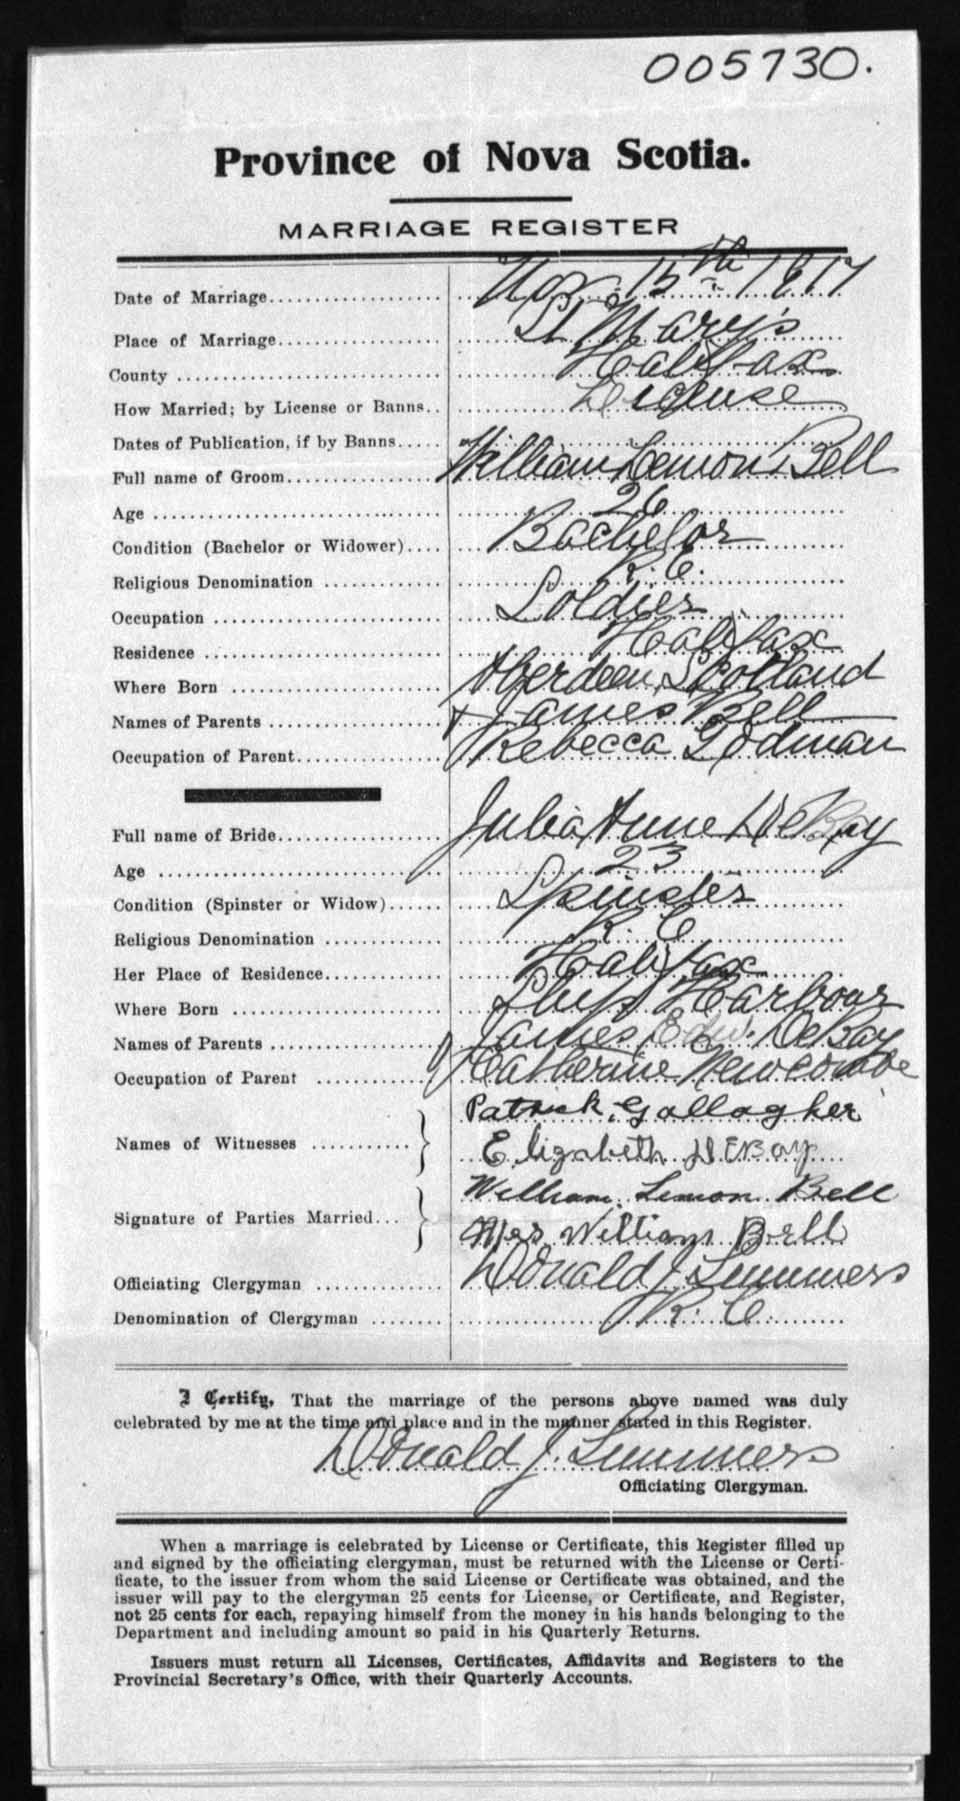 005730.
Province of Nova Scotia.
MARRIAGE REGISTER
Date of Marriage Nov. 15th 1917
Place of Marriage St Mary's
County Halifax
How Married; by License or Banns License
Dates of Publication, if by Banns
Full name of Groom William Lemon Bell
Age 26
Condition (Bachelor or Widower) Bachelor
Religious Denomination R. C.
Occupation Soldier
Residence Halifax
Where Born Aberdeen, Scotland
Names of Parents James Bell
Occupation of Parent Rebecca Godman
Full name of Bride Julia Anne DeBay
Age 23
Condition (Spinster or Widow) Spinster
Religious Denomination R. C.
Her Place of Residence Halifax
Where Born Ship Harbour
Names of Parents James Edw. DeBay
Occupation of Parent Catherine Newcombe
Names of Witnesses Patrick Gallagher
Elizabeth DeBay
Signature of Parties Married William Lemon Bell
Mrs William Bell
Officiating Clergyman Donald J. Summers
Denomination of Clergyman R. C.
I Certify, That the marriage of the persons above named was duly
celebrated by me at the time and place and in the manner stated in this Register.
Donald J. Summers
Officiating Clergyman.
When a marriage is celebrated by License or Certificate, this Register filled up
and signed by the officiating clergyman, must be returned with the License or Certi-
ficate, to the issuer from whom the said License or Certificate was obtained, and the
issuer will pay to the clergyman 25 cents for License, or Certificate, and Register,
not 25 cents for each, repaying himself from the money in his hands belonging to the
Department and including amount so paid in his Quarterly Returns.
Issuers must return all Licenses, Certificates, Affidavits and Registers to the
Provincial Secretary's Office, with their Quarterly Accounts.